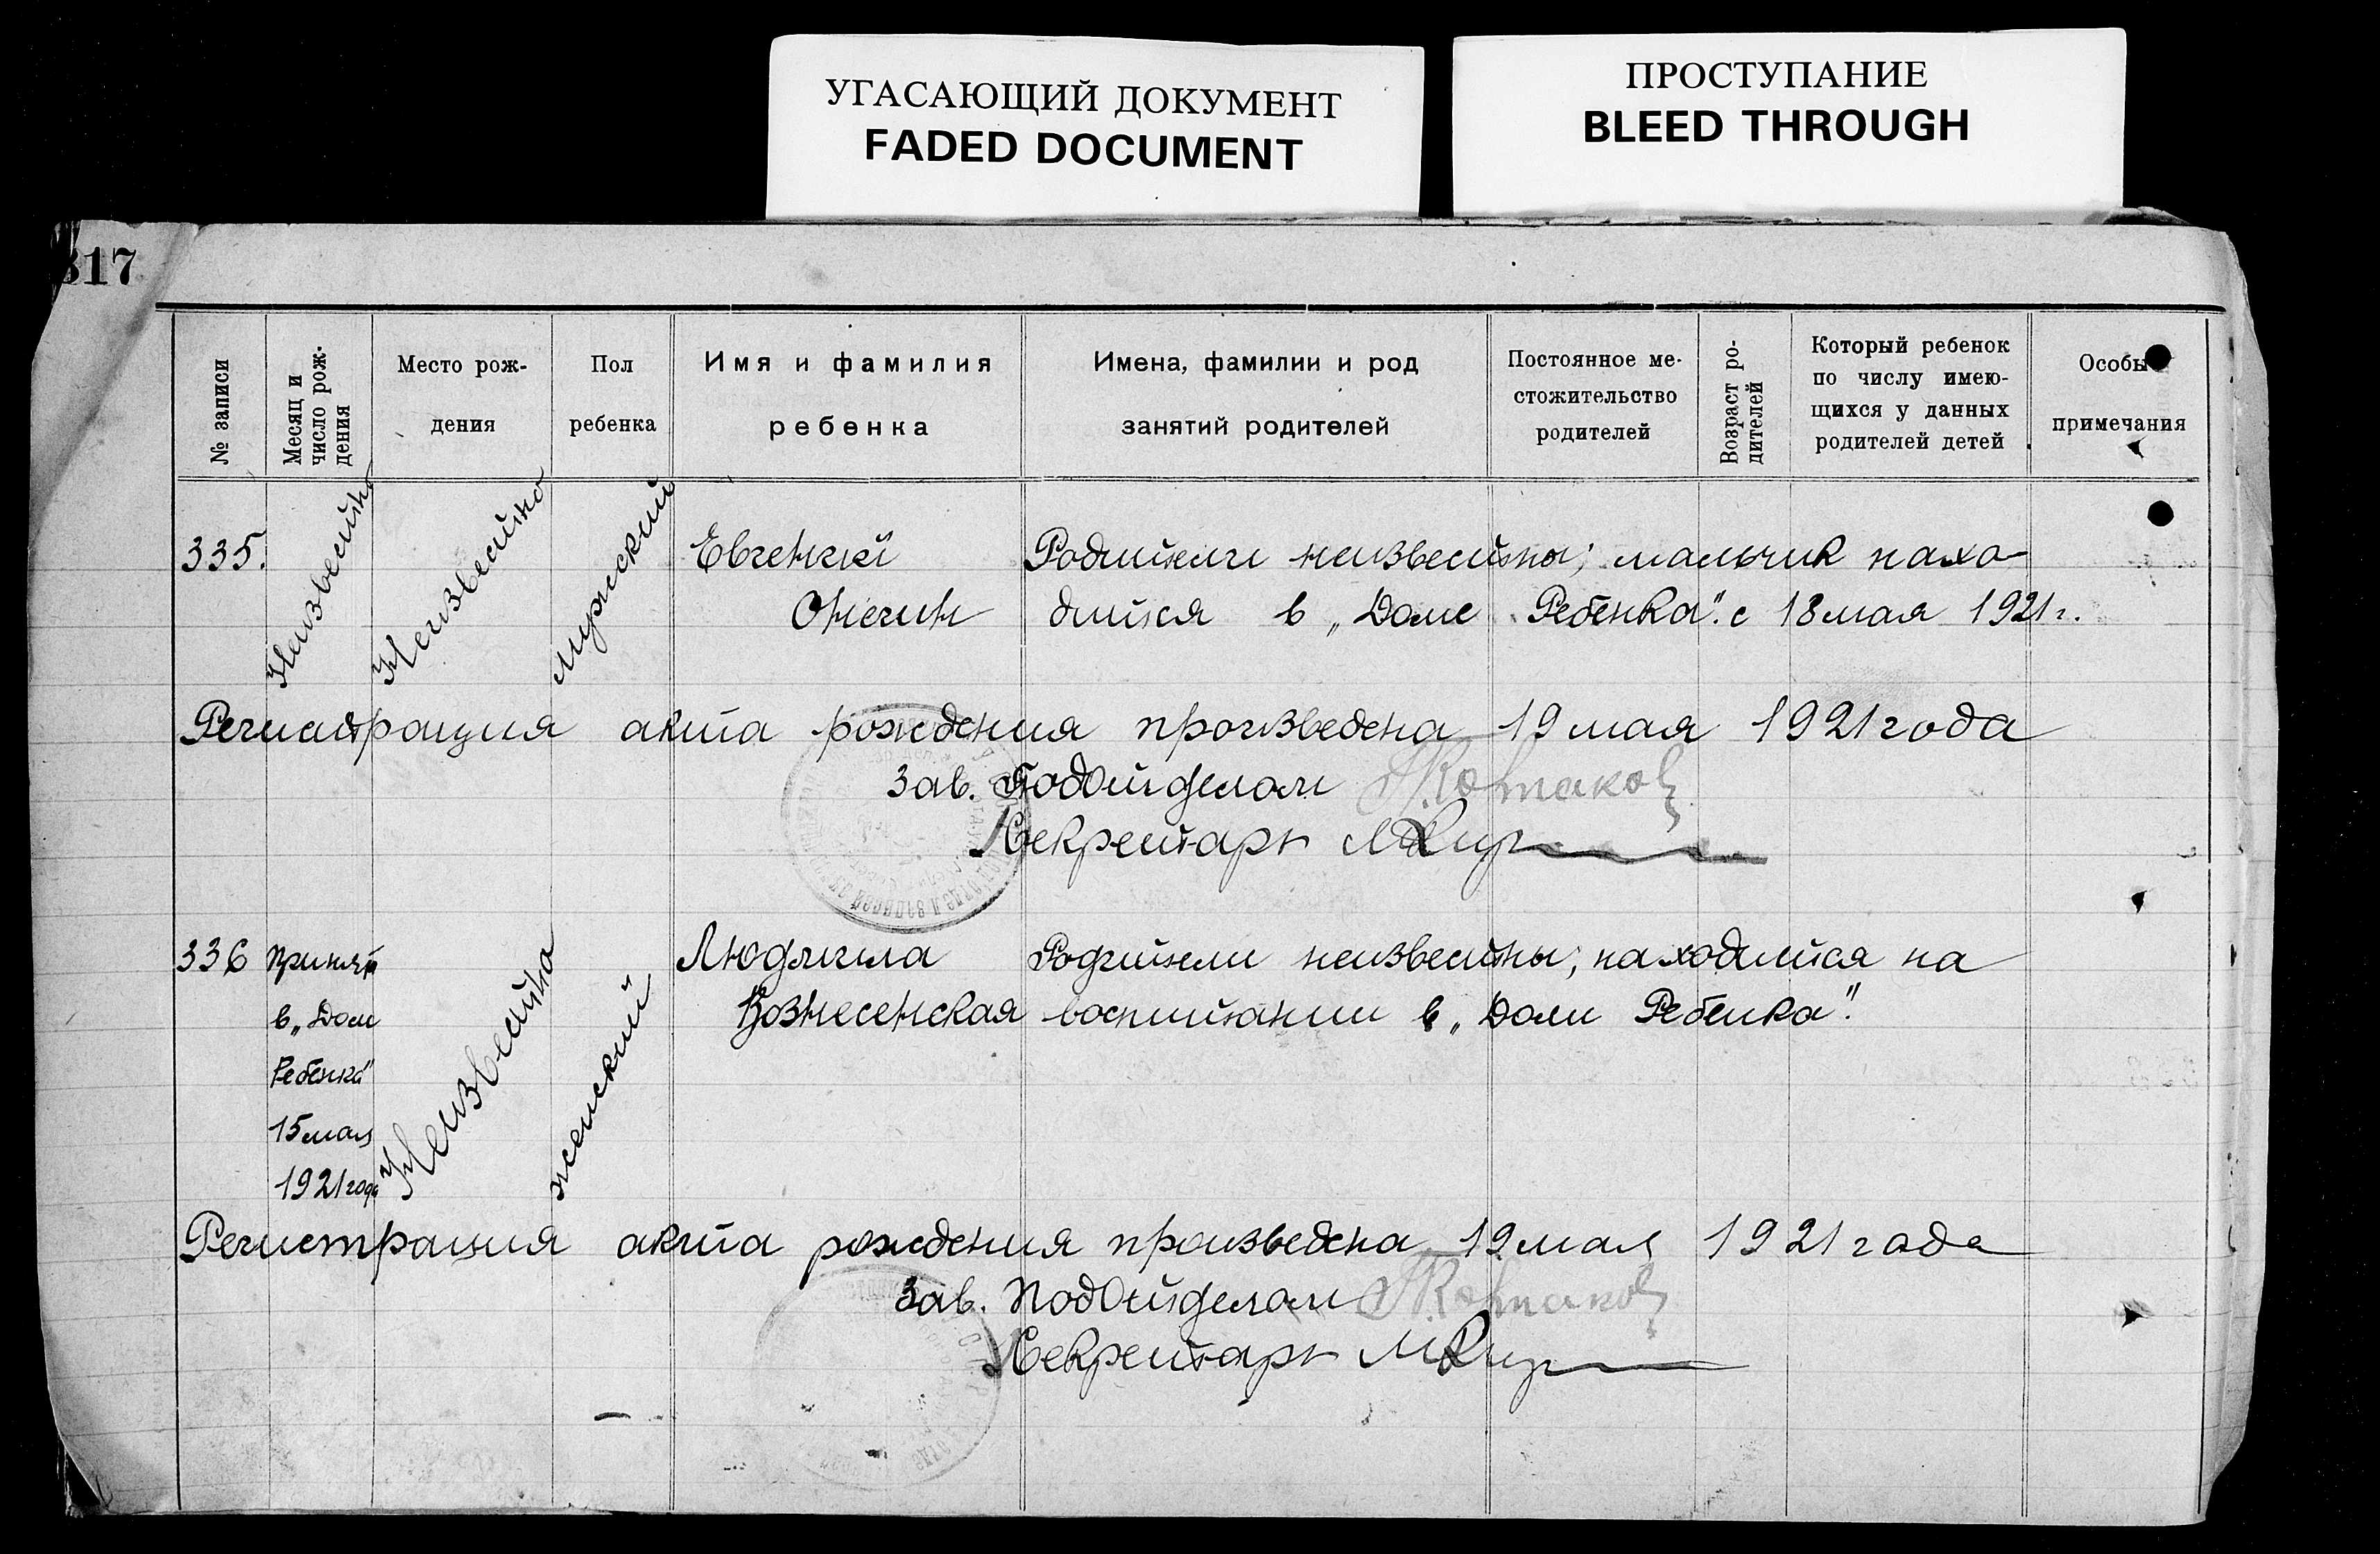 УГАСАЮЩИЙ ДОКУМЕНТ
FADED DOCUMENT
ПРОСТУПАНИЕ
BLEED THROUGH
317
№ записи
Месяц и
число рож-
дения
Место рож-
дения
Пол
ребенка
Имя и фамилия
ребенка
Имена, фамилии и род
занятий родителей
Постоянное ме-
стожительство
родителей
Возраст ро-
дителей
Который ребенок
по числу имею-
щихся у данных
родителей детей
Особые
примечания
335.
Неизвестно
Неизвестно
мужской
Евгений
Онегин
Родители неизвестны; мальчик нахо-
дится в „Доме Ребенка". с 18 мая 1921 г.
Регистрация акта рождения произведена 19 мая 1921 года
Зав. Подотделом
Секретарь
336
Принят
в „Дом
Ребенка"
15 мая
1921 года
Неизвестно
женский
Людмила
Вознесенская
Родители неизвестны; находится на
воспитании в „Доме Ребенка".
Регистрация акта рождения произведена 19 мая 1921 года
Зав. Подотделом
Секретарь